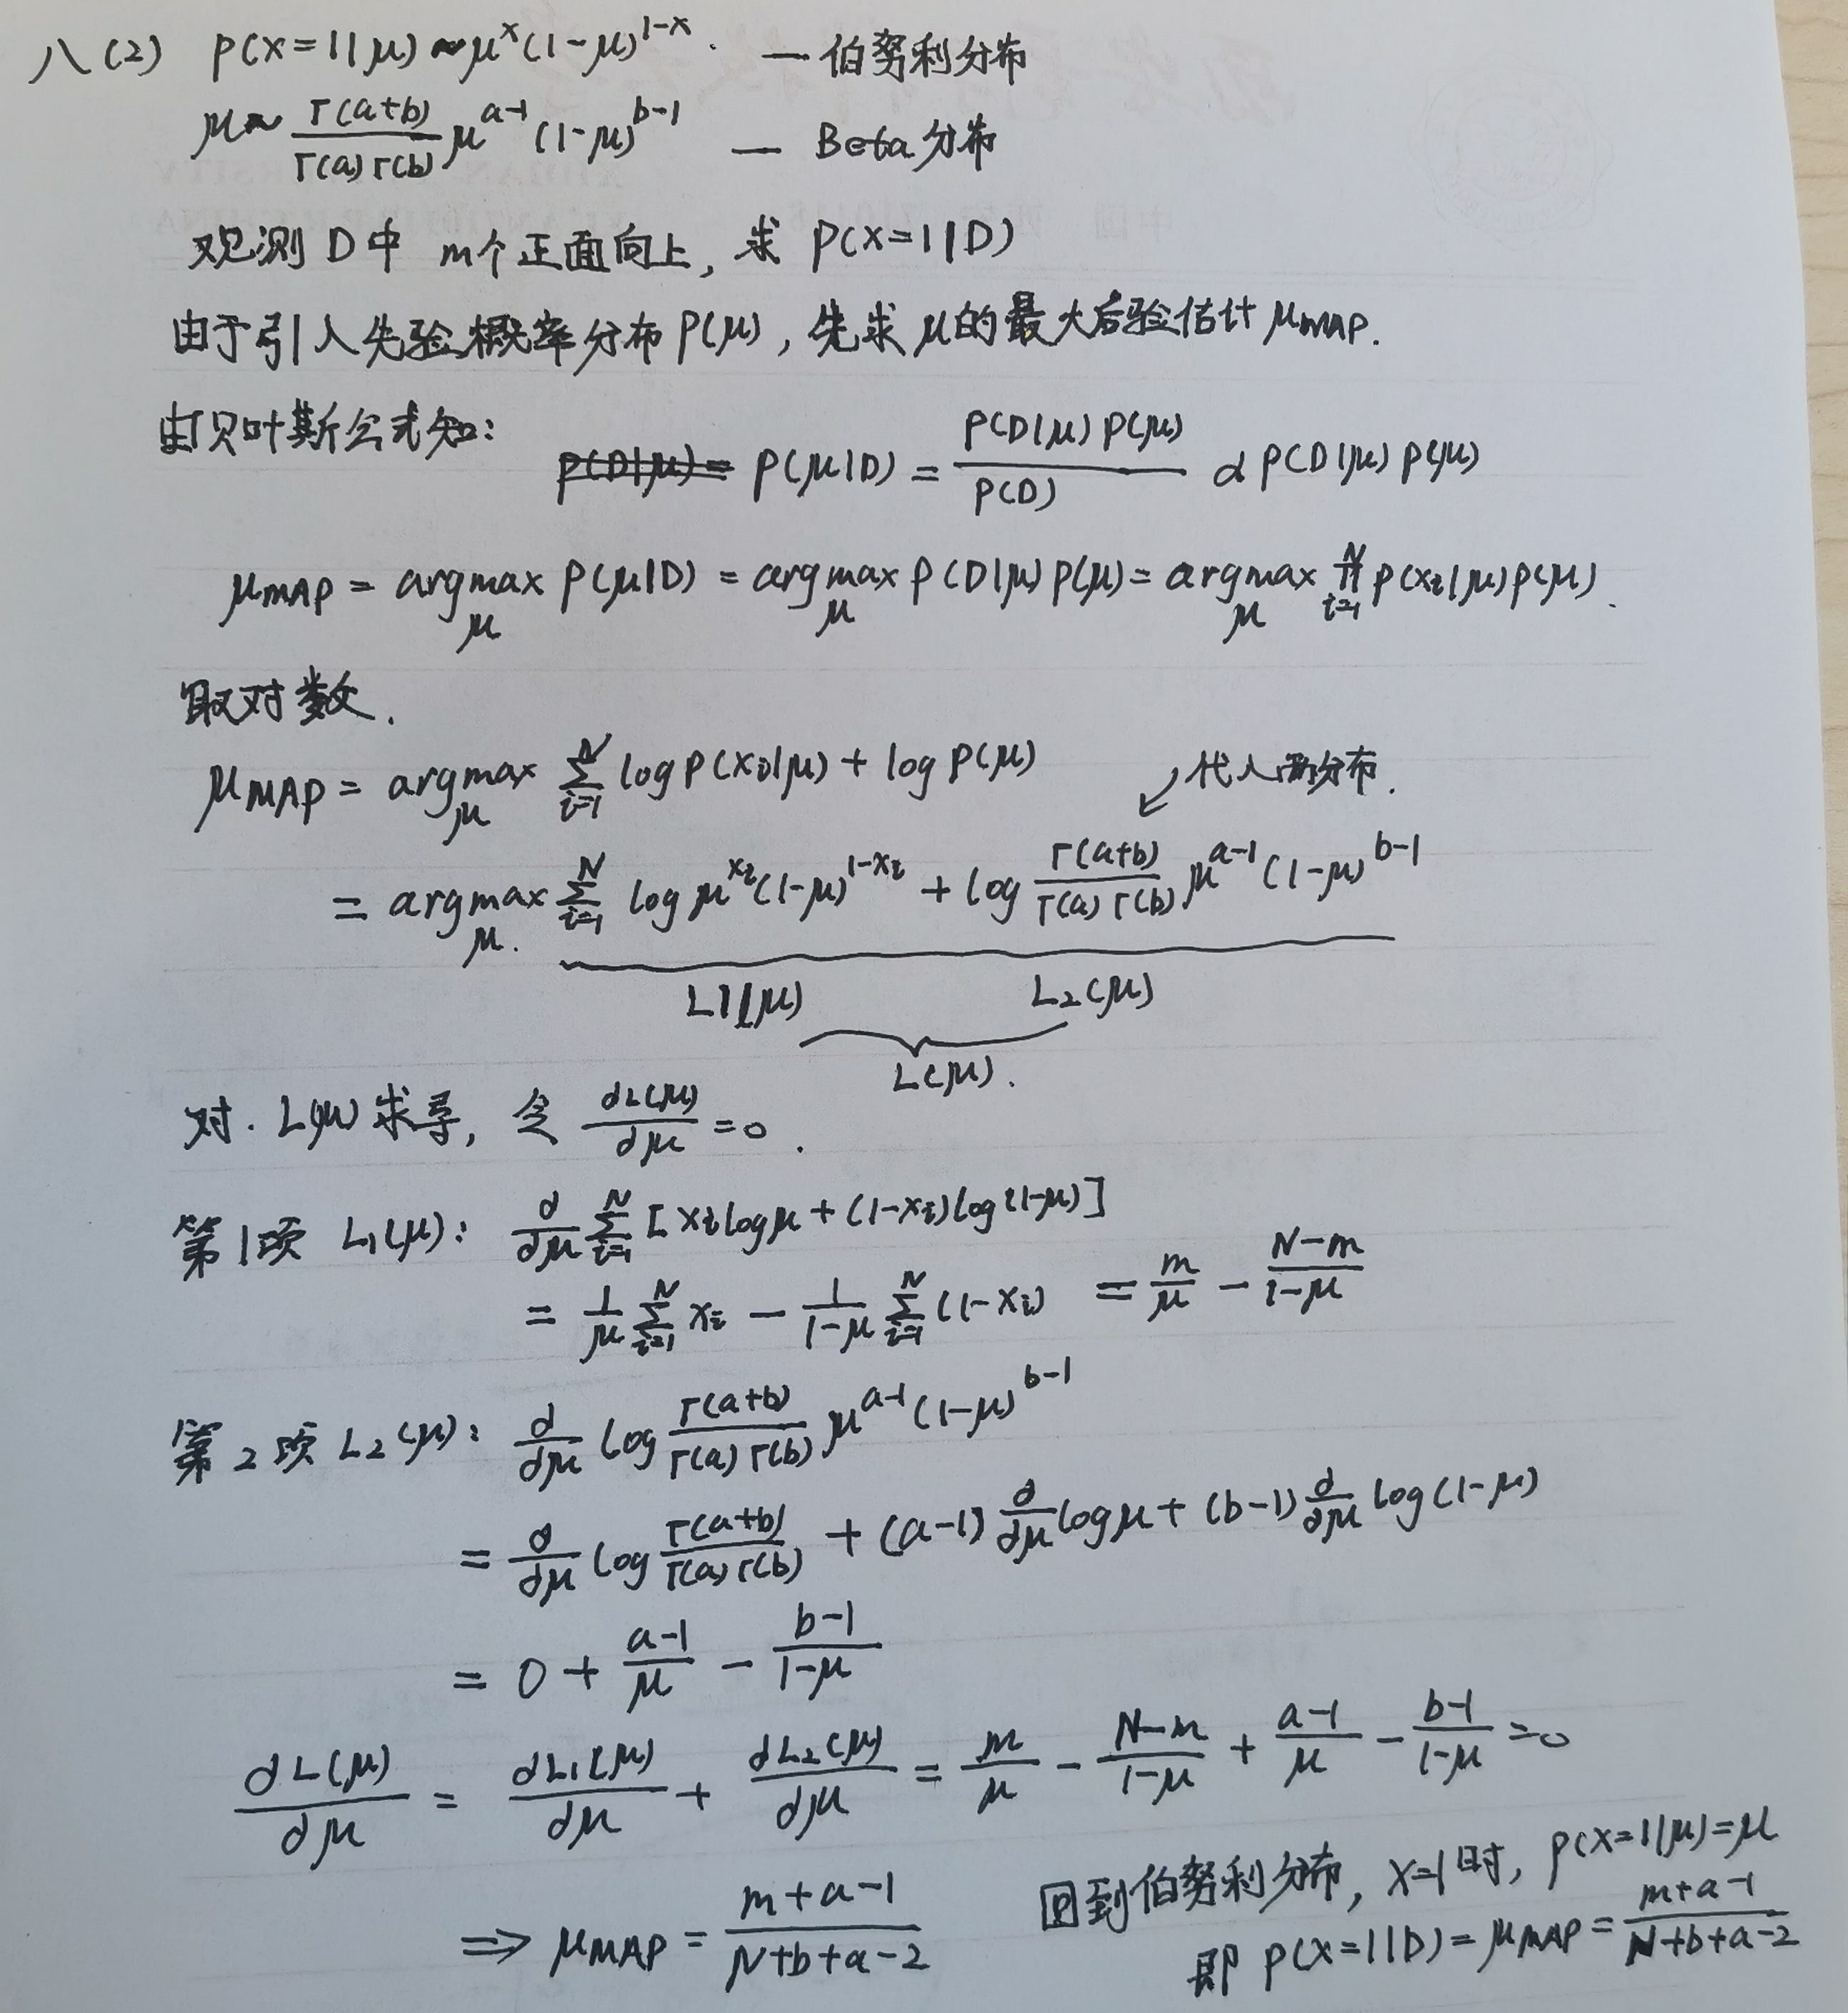 八(2) P(X=1|μ)~μ^x(1-μ)^{1-x}. — 伯努利分布
μ~ Γ(a+b)/Γ(a)Γ(b) μ^{a-1}(1-μ)^{b-1} — Beta分布
观测D中 m个正面向上, 求 P(X=1|D)
由于引入先验概率分布P(μ), 先求μ的最大后验估计μMAP.
由贝叶斯公式知:
P(D|μ)= P(μ|D) = P(D|μ)P(μ)/P(D) ∝ P(D|μ)P(μ)
μMAP = argmax_μ P(μ|D) = argmax_μ P(D|μ)P(μ) = argmax_μ ∏_{i=1}^N P(xi|μ)P(μ).
取对数.
μMAP = argmax_μ Σ_{i=1}^N log P(xi|μ) + log P(μ) ↙代入两分布.
= argmax_μ. Σ_{i=1}^N log μ^{xi}(1-μ)^{1-xi} + log Γ(a+b)/Γ(a)Γ(b) μ^{a-1}(1-μ)^{b-1}
L1(μ) L2(μ)
L(μ).
对. L(μ)求导, 令 dL(μ)/dμ =0.
第1项 L1(μ): d/dμ Σ_{i=1}^N [xi log μ + (1-xi)log(1-μ)]
= 1/μ Σ_{i=1}^N xi - 1/(1-μ) Σ_{i=1}^N (1-xi) = m/μ - (N-m)/(1-μ)
第2项 L2(μ): d/dμ log Γ(a+b)/Γ(a)Γ(b) μ^{a-1}(1-μ)^{b-1}
= d/dμ log Γ(a+b)/Γ(a)Γ(b) + (a-1) d/dμ log μ + (b-1) d/dμ log(1-μ)
= 0 + (a-1)/μ - (b-1)/(1-μ)
dL(μ)/dμ = dL1(μ)/dμ + dL2(μ)/dμ = m/μ - (N-m)/(1-μ) + (a-1)/μ - (b-1)/(1-μ) =0
⇒ μMAP = (m+a-1)/(N+b+a-2)
回到伯努利分布, X=1时, P(X=1|μ)=μ
即 P(X=1|D) = μMAP = (m+a-1)/(N+b+a-2)